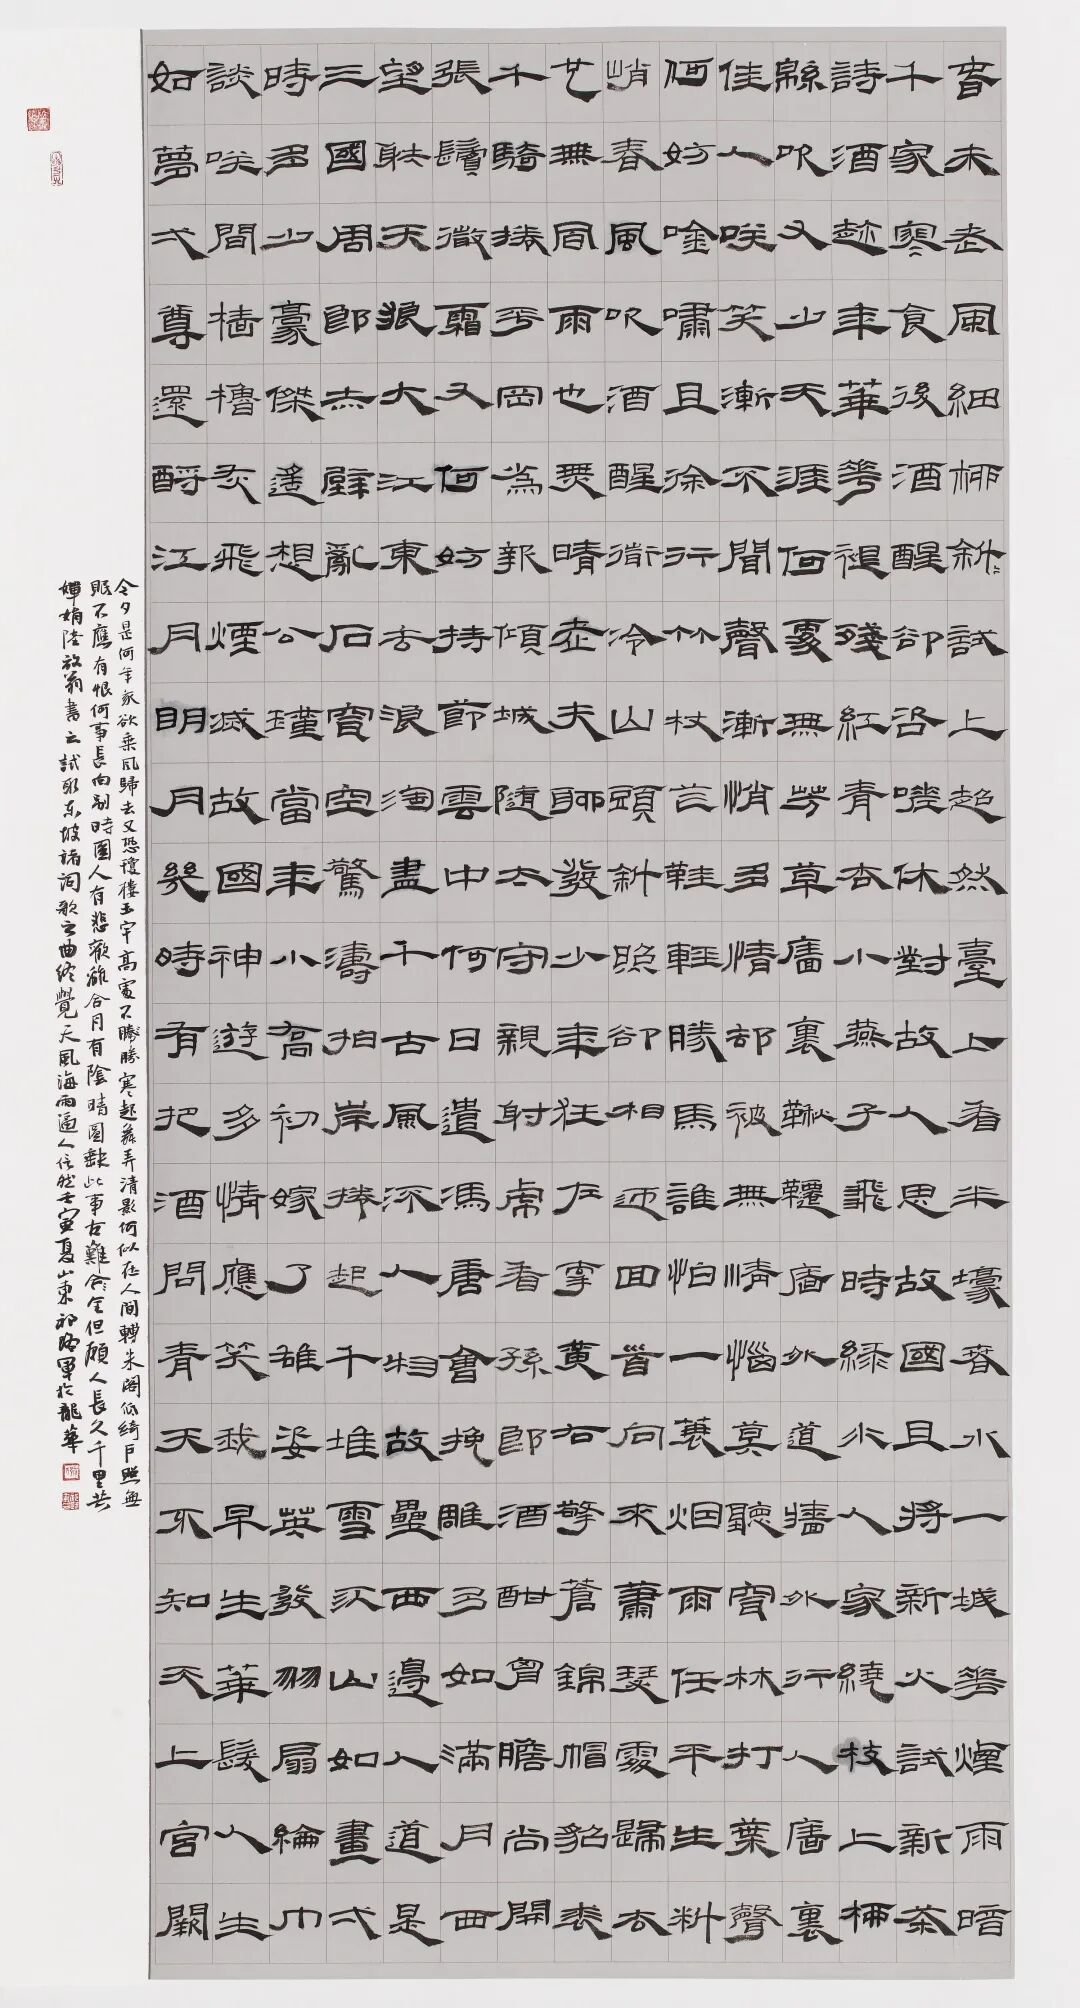 春未老風細柳斜斜試上超然臺上看半壕春水一城花煙雨暗
千家寒食後酒醒卻咨嗟休對故人思故國且將新火試新茶
詩酒趁年華花褪殘紅青杏小燕子飛時綠水人家繞枝上柳
綿吹又少天涯何處無芳草牆裏鞦韆牆外道牆外行人牆裏
佳人咲笑漸不聞聲漸悄多情卻被無情惱莫聽穿林打葉聲
何妨唫嘯且徐行竹杖芒鞋輕勝馬誰怕一蓑烟雨任平生料
峭春風吹酒醒微冷山頭斜照卻相迎回首向來蕭瑟處歸去
也無風雨也無晴老夫聊發少年狂左牽黃右擎蒼錦帽貂裘
千騎捲平岡為報傾城隨太守親射虎看孫郎酒酣胷膽尚開
張鬢微霜又何妨持節雲中何日遣馮唐會挽雕弓如滿月西
望射天狼大江東去浪淘盡千古風流人物故壘西邊人道是
三國周郎赤壁亂石穿空驚濤拍岸捲起千堆雪江山如畫弌
時多少豪傑遙想公瑾當年小喬初嫁了雄姿英發羽扇綸巾
談咲間檣櫓灰飛煙滅故國神遊多情應笑我早生華髮人生
如夢弌尊還酹江月明月幾時有把酒問青天不知天上宮闕
今夕是何年我欲乘風歸去又恐瓊樓玉宇高處不勝勝寒起舞弄清影何似在人間轉朱閣低綺戶照無
眠不應有恨何事長向別時圓人有悲歡離合月有陰晴圓缺此事古難全但願人長久千里共
嬋娟陸放翁書云試取東坡諸詞歌之曲終覺天風海雨逼人信然壬寅夏山東祁軍於龍華